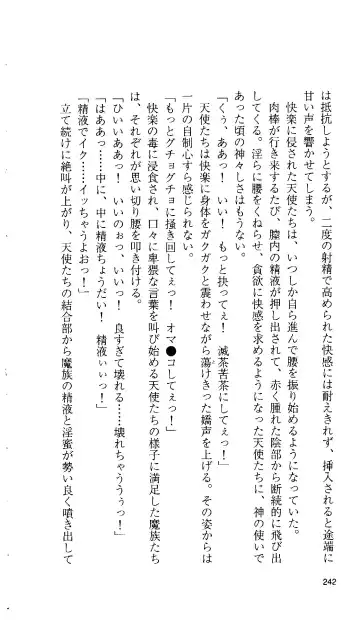 は抵抗しようとするが、二度の射精で高められた快感には耐えきれず、挿入されると途端に
甘い声を響かせてしまう。
快楽に侵された天使たちは、いつしか自ら進んで腰を振り始めるようになっていた。
肉棒が行き来するたび、膣内の精液が押し出されて、赤く腫れた陰部から断続的に飛び出
してくる。淫らに腰をくねらせ、貪欲に快感を求めるようになった天使たちに、神の使いで
あった頃の神々しさはもうない。
「くぅ、ああっ！　いい！　もっと抉ってぇ！　滅茶苦茶にしてぇっ！」
天使たちは快楽に身体をガクガクと震わせながら蕩けきった嬌声を上げる。その姿からは
一片の自制心すら感じられない。
「もっとグチョグチョに掻き回してぇっ！　オマ●コしてぇっ！」
快楽の毒に浸食され、口々に卑猥な言葉を叫び始める天使たちの様子に満足した魔族たち
は、それぞれが思い切り腰を叩き付ける。
「ひいいああっ！　いいのぉっ、いいっ！　良すぎて壊れる……壊れちゃううぅっ！」
「はああっ……中に、中に精液ちょうだい！　精液ぃぃっ！」
「精液でイク……イッちゃうよおっ！」
立て続けに絶叫が上がり、天使たちの結合部から魔族の精液と淫蜜が勢い良く噴き出して
242